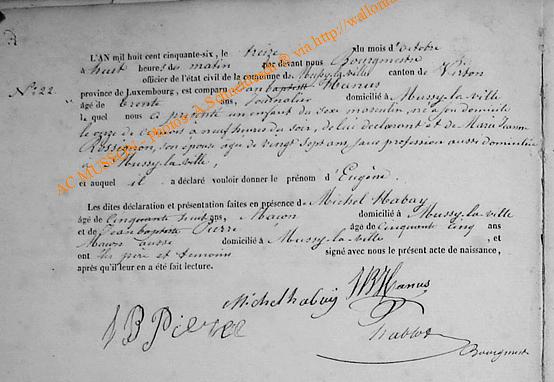 L'AN mil huit cent cinquante-six, le treize du mois d'octobre
à huit heures du matin par devant nous Bourgmestre
officier de l'état civil de la commune de Mussy-la-ville canton de Virton
N° 22. province de Luxembourg, est comparu Jean baptiste Hanus
âgé de trente ans, Journalier domicilié à Mussy-la-ville
le quel nous a présenté un enfant du sexe masculin, né à son domicile
le onze de ce mois à neuf heures du soir, de lui déclarant et de Marie Jeanne
Rossignon, son épouse âgée de vingt sept ans, sans profession aussi domiciliée
à Mussy-la-ville,
et auquel il a déclaré vouloir donner le prénom d'Eugène.
Les dites déclaration et présentation faites en présence de Michel Habay
âgé de Cinquante huit ans, Maçon domicilié à Mussy-la-ville
et de Jean baptiste Pierre âgé de Cinquante Cinq ans
Maçon aussi domicilié à Mussy-la-ville, et
ont les père et témoins signé avec nous le présent acte de naissance,
après qu'il leur en a été fait lecture.
Michel habay JB Hanus
JB Pierre
Bourgmestre
AC MUSSON - Photos A.Schackmann © via http://wallonia